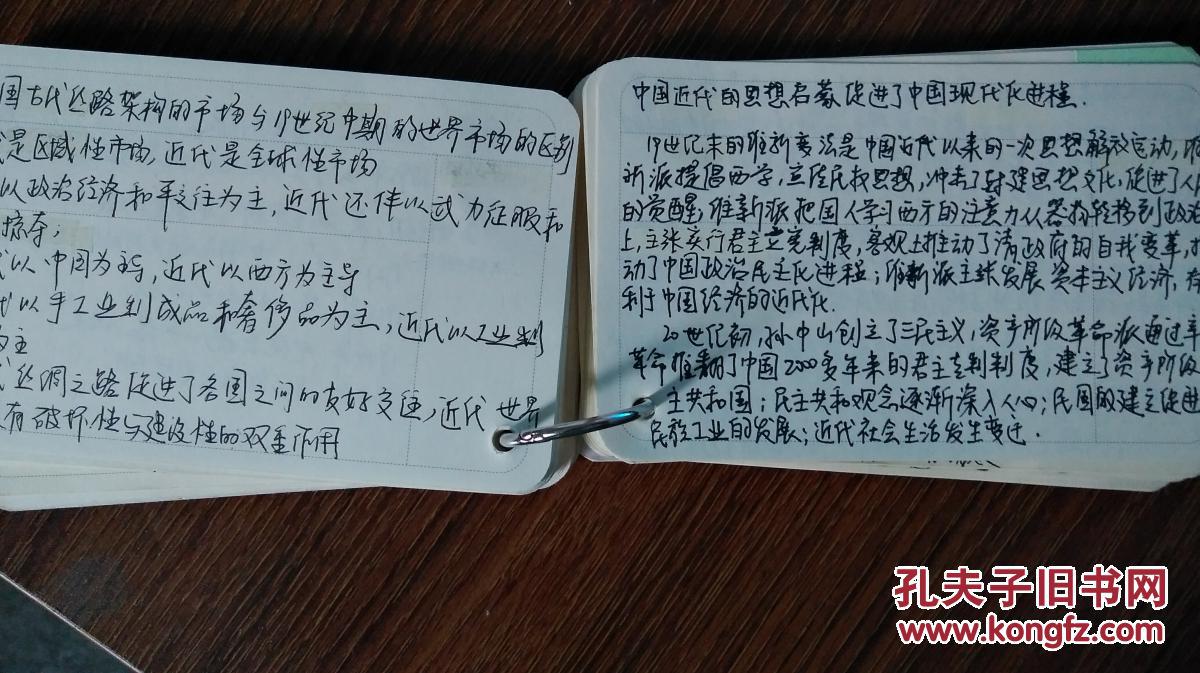 国古代丝路架构的市场与19世纪中期的世界市场的区别
是区域性市场,近代是全球性市场
以政治经济和平交往为主,近代还伴以武力征服和
掠夺;
以中国为主导,近代以西方为主导
代以手工业制成品和奢侈品为主,近代以工业制
为主
丝绸之路促进了各国之间的友好交往,近代世界
有破坏性与建设性的双重作用
中国近代的思想启蒙促进了中国现代化进程.
19世纪末的维新变法是中国近代以来的一次思想解放运动,
新派提倡西学,宣传民权思想,冲击了封建思想文化,促进了人
的觉醒;维新派把国人学习西方的注意力从器物转移到政治
上,主张实行君主立宪制度,客观上推动了清政府的自我变革,
动了中国政治民主化进程;维新派主张发展资本主义经济,有
利于中国经济的近代化.
20世纪初,孙中山创立了三民主义,资产阶级革命派通过辛
革命推翻了中国2000多年来的君主专制制度,建立了资产阶级
主共和国;民主共和观念逐渐深入人心;民国的建立促进
民族工业的发展;近代社会生活发生变迁.
孔夫子旧书网
www.kongfz.com